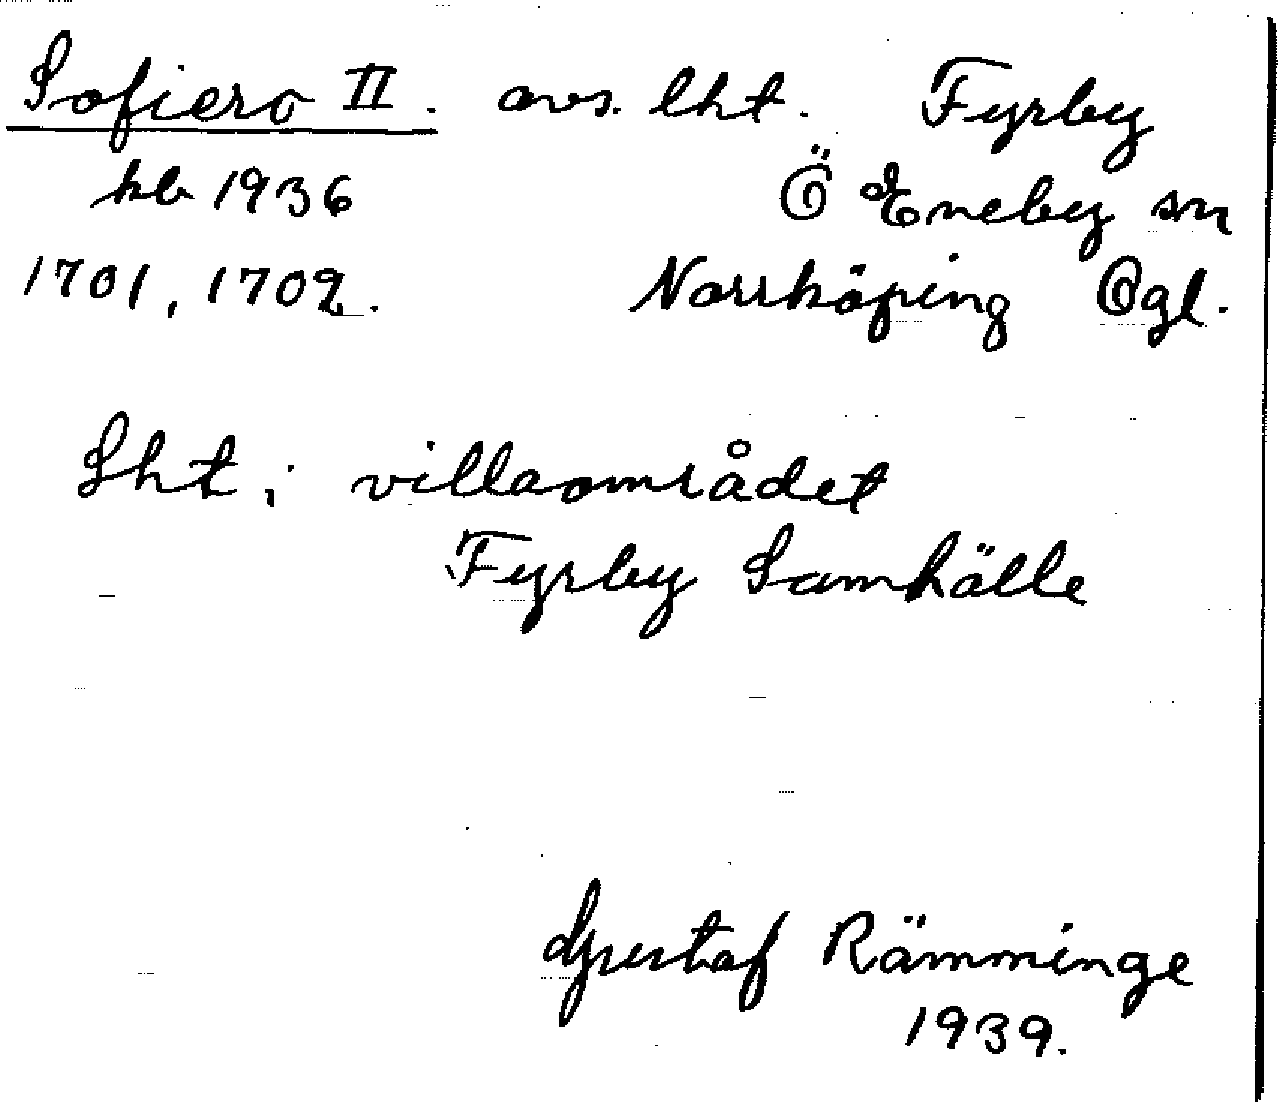 Sofiero II. avs. lht. Fyrby
kb 1936 Ö Eneby sn
1701, 1702. Norrköping Ögl.
Lht i villaområdet
Fyrby Samhälle
Gustaf Rämminge
1939.